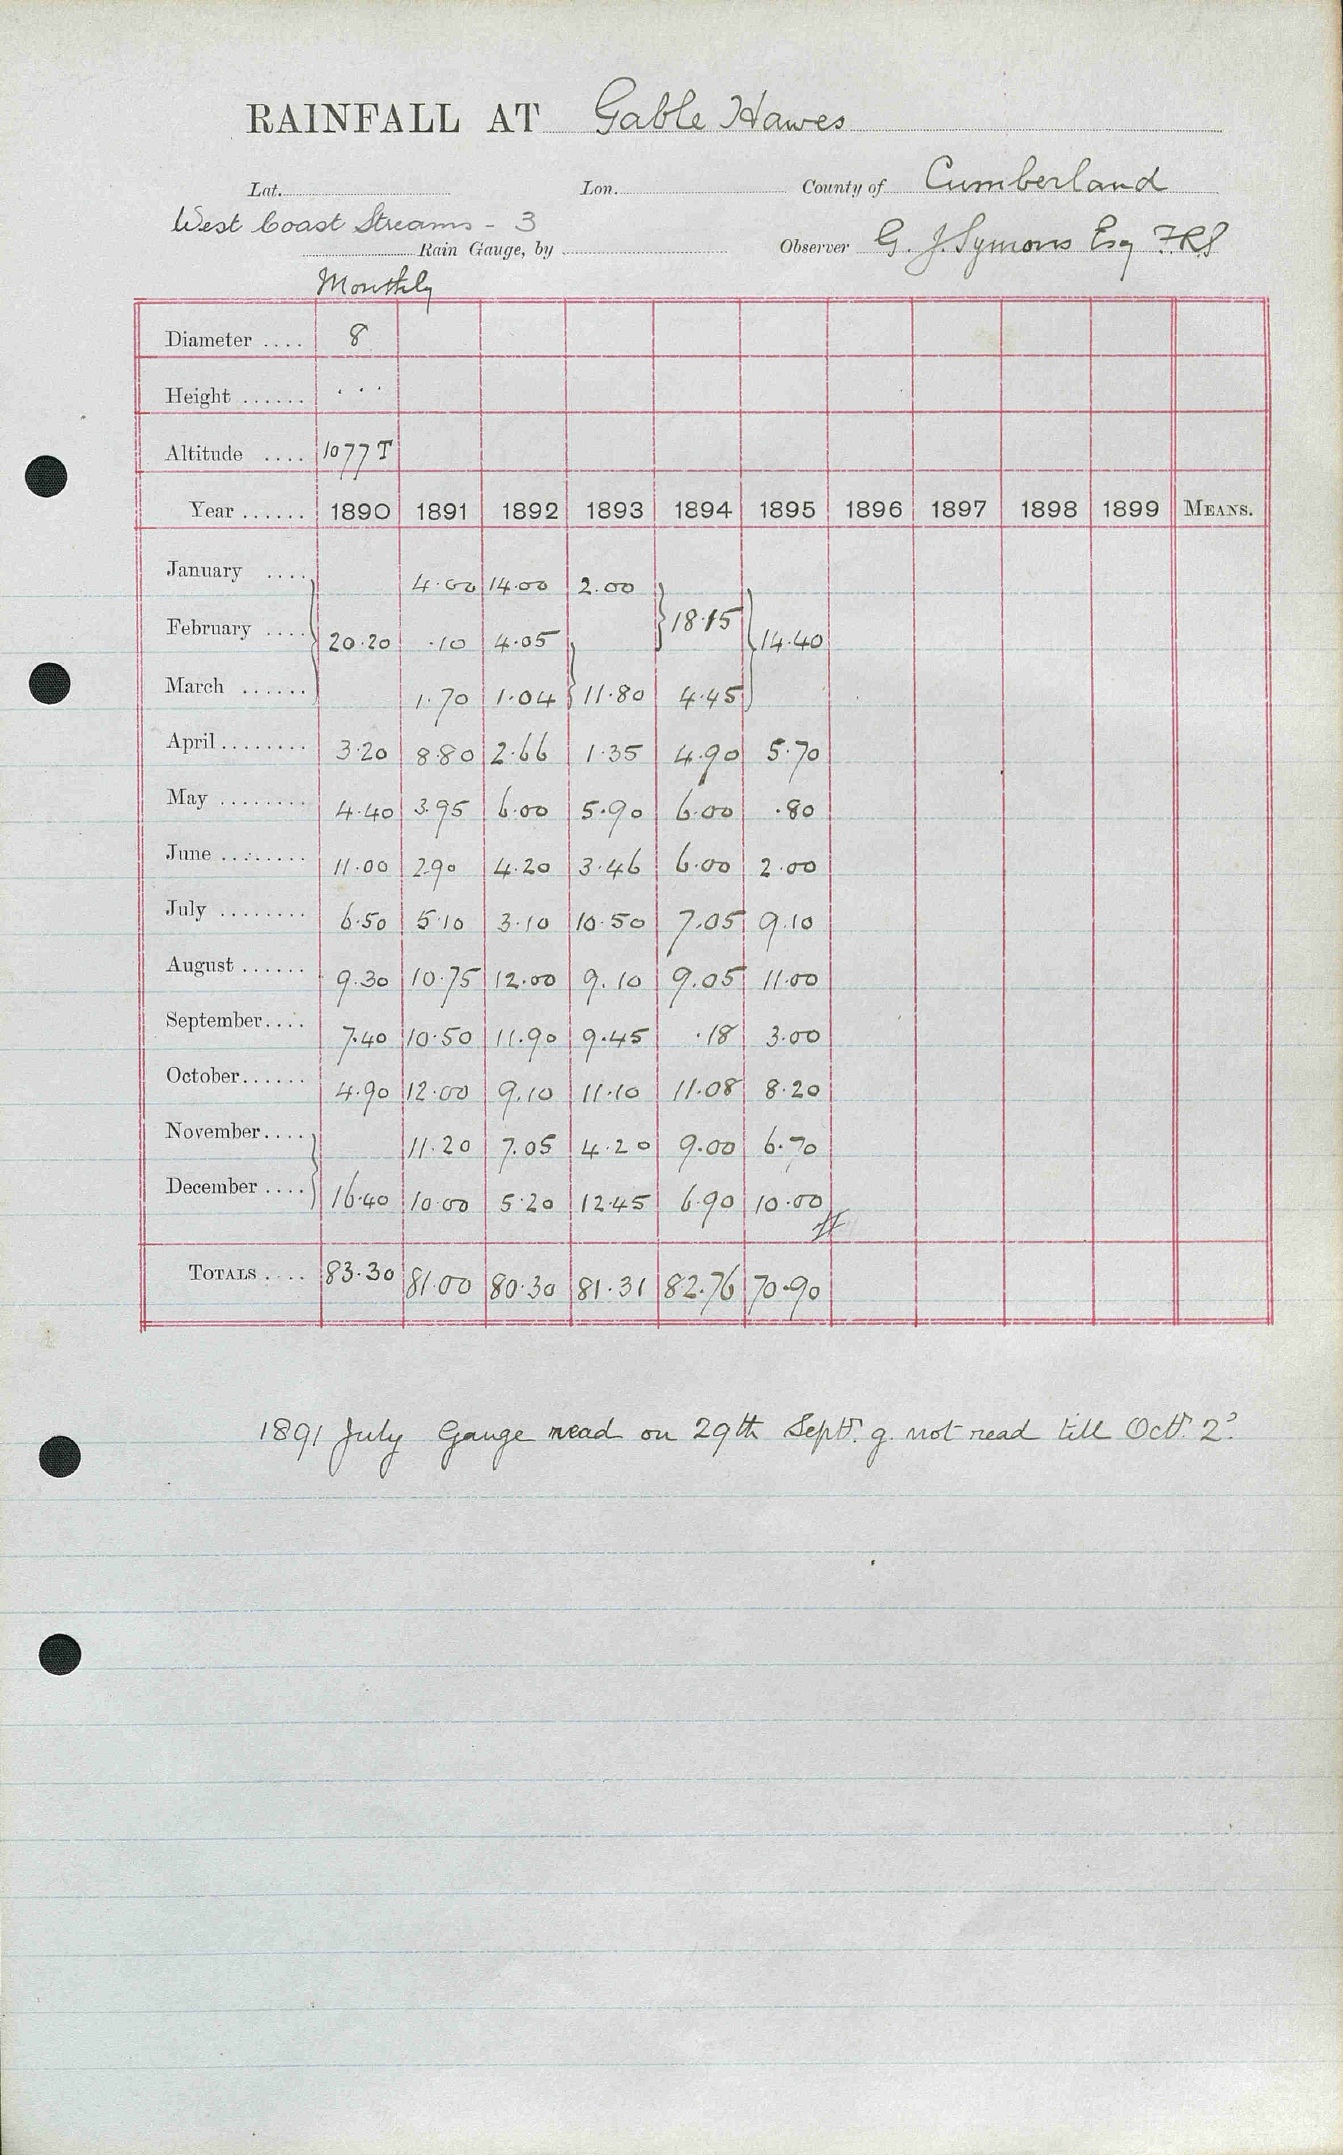 RAINFALL AT Gable Hawes
Lat. Lon. County of Cumberland
West Coast Streams - 3
Rain Gauge, by Observer G. J. Symons Esq F.R.S
Monthly
Diameter .... 8
Height ...... . . .
Altitude .... 1077 T
Year ...... 1890 1891 1892 1893 1894 1895 1896 1897 1898 1899 MEANS.
January .... 4.00 14.00 2.00
February .... 20.20 .10 4.05 18.15 14.40
March ...... 1.70 1.04 11.80 4.45
April ........ 3.20 8.80 2.66 1.35 4.90 5.70
May ........ 4.40 3.95 6.00 5.90 6.00 .80
June ........ 11.00 2.90 4.20 3.46 6.00 2.00
July ........ 6.50 5.10 3.10 10.50 7.05 9.10
August ...... 9.30 10.75 12.00 9.10 9.05 11.00
September.... 7.40 10.50 11.90 9.45 .18 3.00
October...... 4.90 12.00 9.10 11.10 11.08 8.20
November.... 11.20 7.05 4.20 9.00 6.70
December .... 16.40 10.00 5.20 12.45 6.90 10.00
TOTALS .... 83.30 81.00 80.30 81.31 82.76 70.90
1891 July Gauge read on 29th Sept. g. not read till Oct. 2